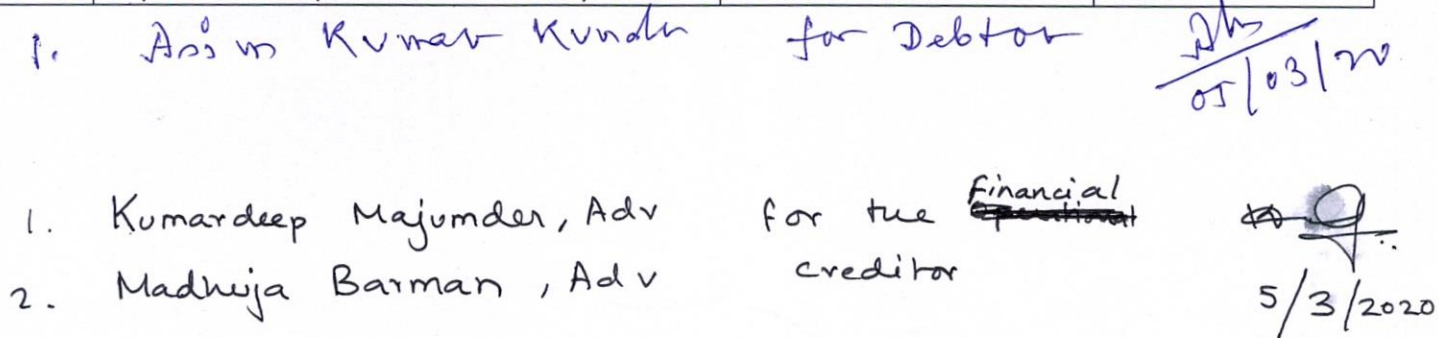 1. Asim Kumar Kundu for Debtor
05/03/20
1. Kumardeep Majumder, Adv for the Financial
2. Madhuja Barman, Adv creditor
5/3/2020